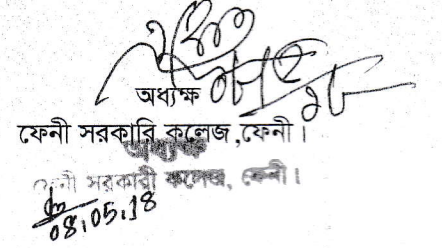 অধ্যক্ষ
ফেনী সরকারি কলেজ,ফেনী।
অধ্যক্ষ
ফেনী সরকারী কলেজ, ফেনী।
08.05.18